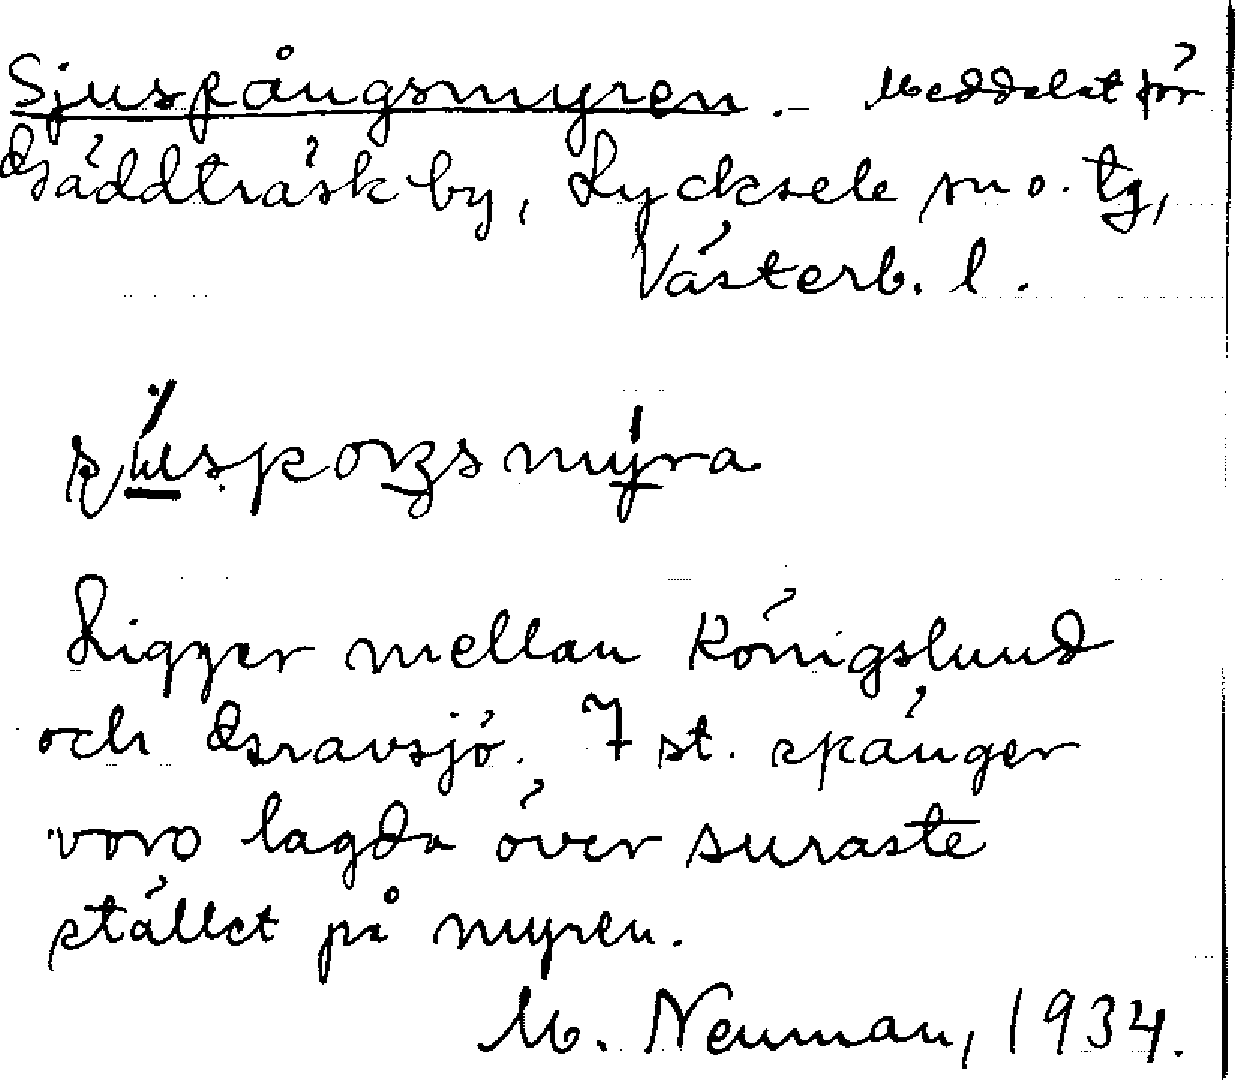 Sjuspångsmyren. - Meddelat för
Gäddträsk by, Lycksele sn o. tg,
Västerb. l.
Ligger mellan Königslund
och Gravsjö. 7 st. spänger
voro lagda över suraste
stället på myren.
M. Neuman, 1934.